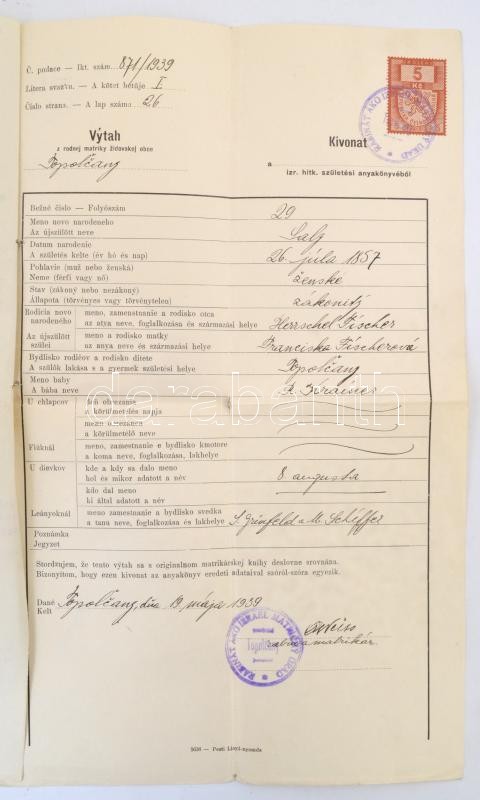 Č. podace — Ikt. szám. 871/1939
Litera svazvn. — A kötet betüje I
Číslo strans. — A lap száma 26
5
Kč
Výtah
z rodnej matriky židovskej obce
Topolčany
Kivonat
a
izr. hitk. születési anyakönyvéből
Bežné číslo — Folyószám 29
Meno novo narodeného
Az újszülött neve Saly
Datum narodenie
A születés kelte (év hó és nap) 26. júla 1857
Pohlavie (muž nebo ženská)
Neme (férfi vagy nő) ženské
Stav (zákoný nebo nezákoný)
Állapota (törvényes vagy törvénytelen) zákonitý
Rodicia novo narodeného
meno, zamestnanie a rodisko otca
az atya neve, foglalkozása és származási helye Herrschel Fischer
Az újszülött szülei
meno a rodisko matky
az anya neve és származási helye Franciska Fischerová
Bydlisko rodičov a rodisko ditete
A szülők lakása s a gyermek születési helye Topolčany
Meno baby
A bába neve
U chlapcov
den obrezania
a körülmetélés napja
meno obrezanca
a körülmetélő neve
Fiúknál
meno, zamestnanie e bydlisko kmotore
a koma neve, foglalkozása, lakhelye
U dievkov
kde a kdy sa dalo meno
hol és mikor adatott a név 8 augusta
kdo dal meno
ki által adatott a név
Leányoknál
meno zamestnanie a bydlisko svedka
a tanu neve, foglalkozása és lakhelye S. Grünfeld a M. Schiffer
Poznámka
Jegyzet
darabanth
Stordzujem, že tento výtah sa s originalnom matrikárskej knihy deslovne srovnána.
Bizonyítom, hogy ezen kivonat az anyakönyv eredeti adataival szóról-szóra egyezik.
Dané
Kelt Topolčany, dňa 19. mája 1939
Topolčany
Weiss
matrikár
RABINÁT AKO IZRAEL. MATRIČNÝ ÚRAD
5636 — Pesti Lloyd-nyomda